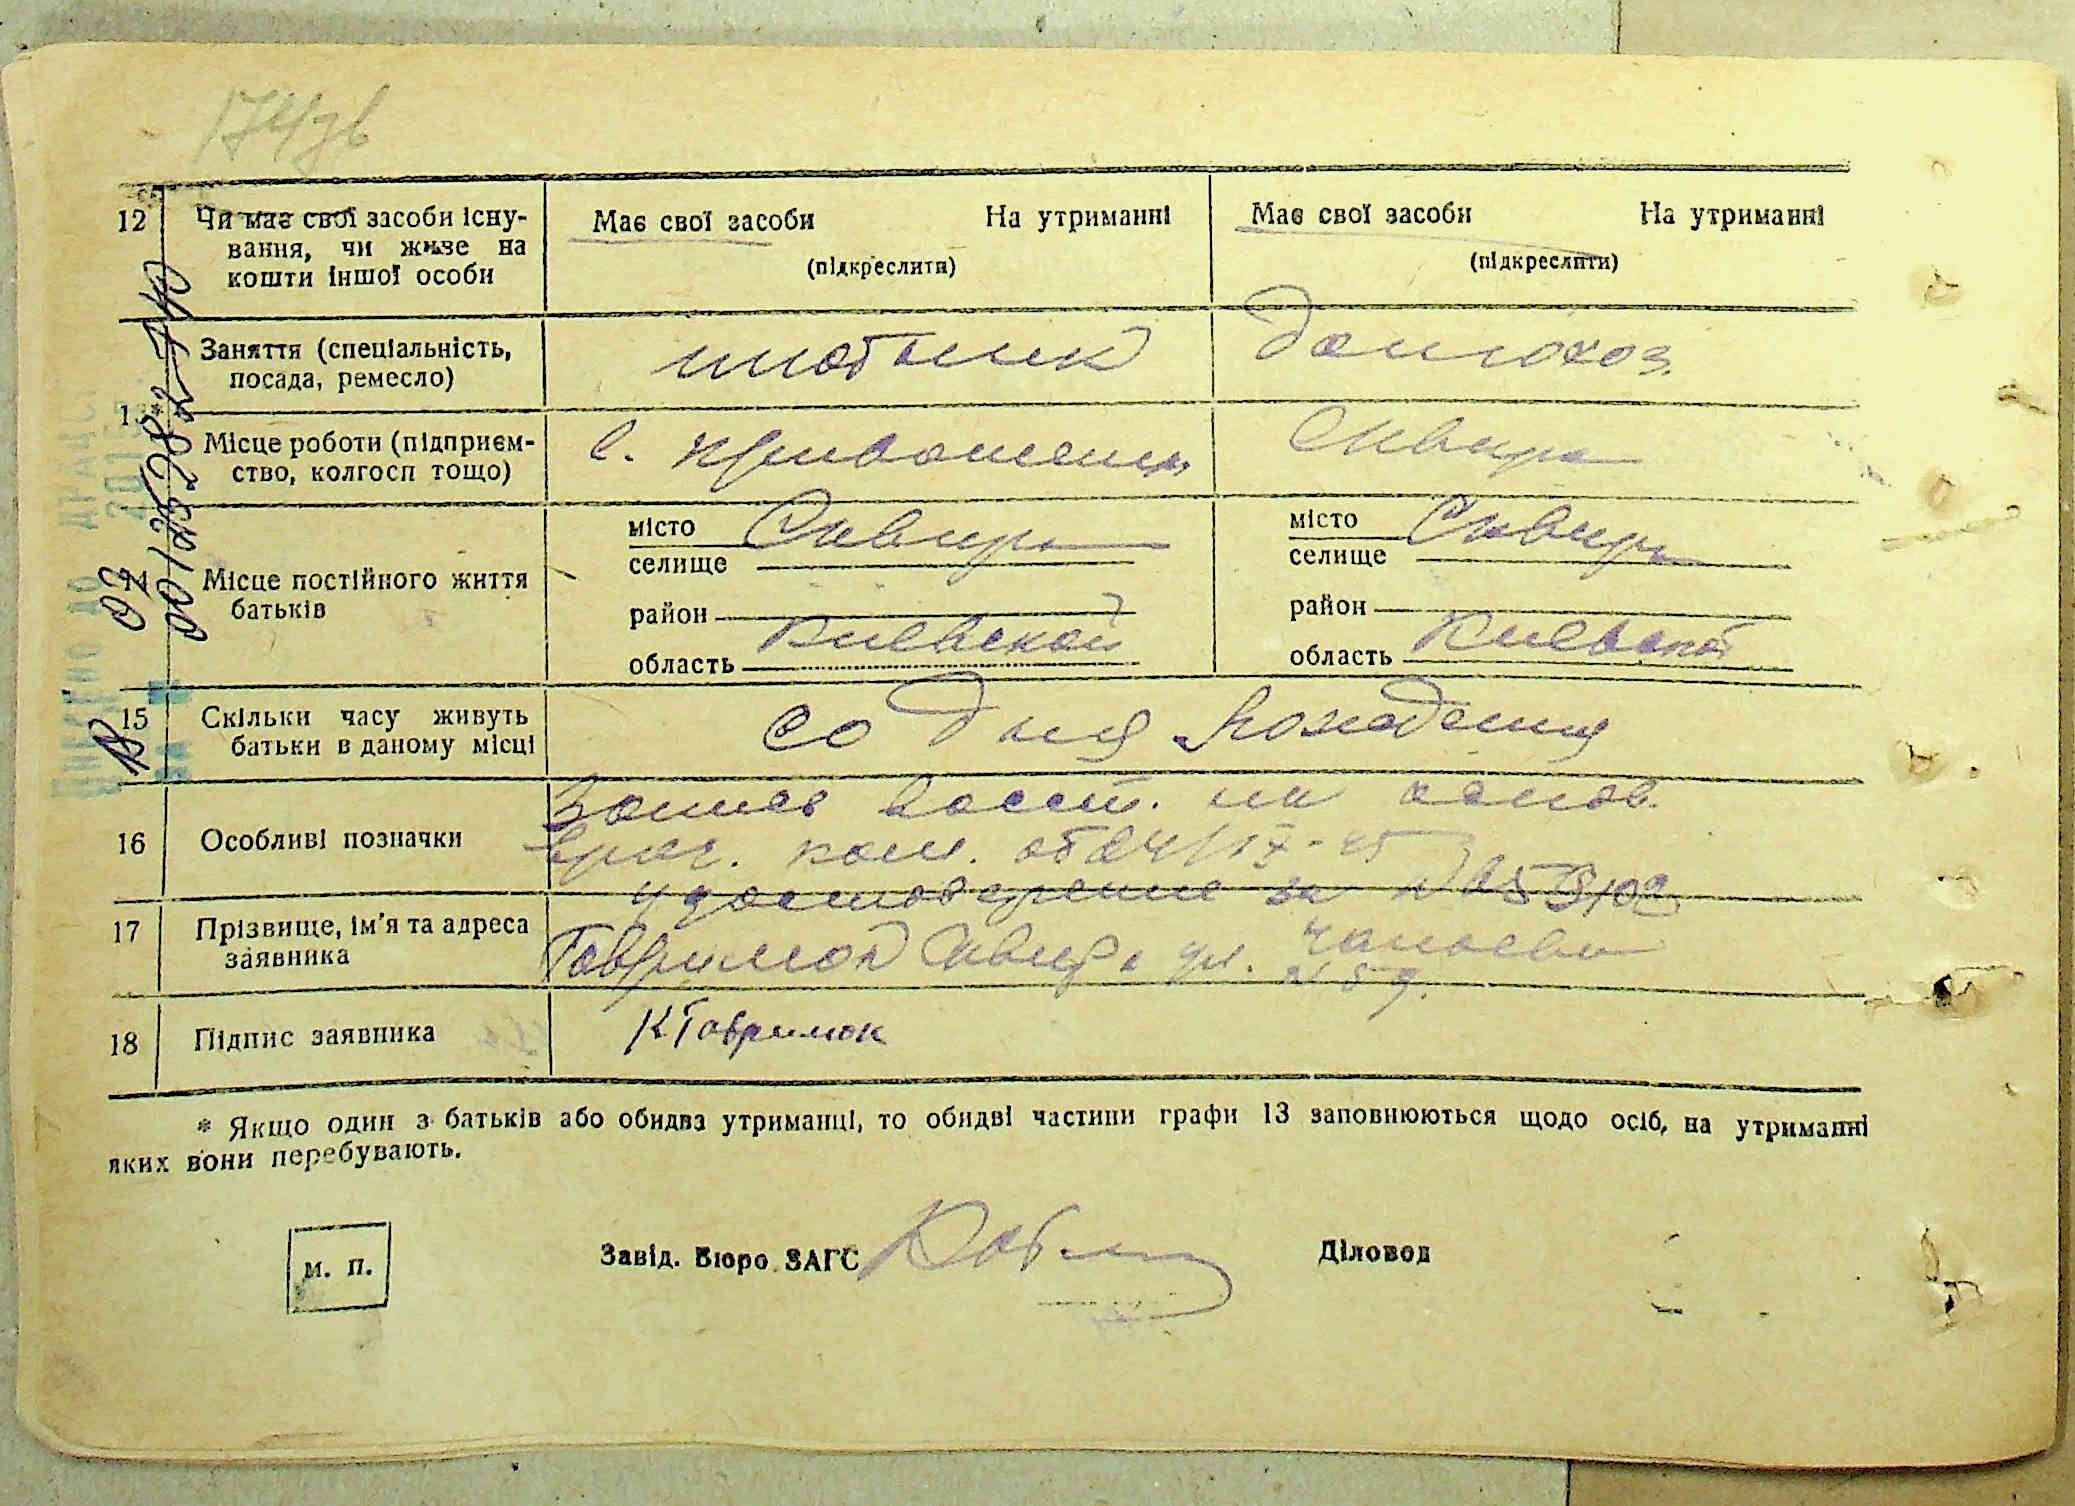 174зв
12 Чи має свої засоби існу-
вання, чи живе на
кошти іншої особи
Має свої засоби На утриманні
(підкреслити)
Має свої засоби На утриманні
(підкреслити)
13*
Заняття (спеціальність,
посада, ремесло)
домохоз.
Місце роботи (підприєм-
ство, колгосп тощо)
с.
Сквира
14 Місце постійного життя
батьків
місто Сквира
селище
район
область Киевской
місто Сквира
селище
район
область Киевской
15 Скільки часу живуть
батьки в даному місці
со дня рождения
16 Особливі позначки
Запись восст. на основ.
врач. ком. от 24/IX-45
удостоверение за №
17 Прізвище, ім'я та адреса
заявника
Гаврилюк Сквира ул. Чапаева
№ 59.
18 Підпис заявника
КГаврилюк
* Якщо один з батьків або обидва утриманці, то обидві частини графи 13 заповнюються щодо осіб, на утриманні
яких вони перебувають.
м. п.
Завід. Бюро ЗАГС
Діловод